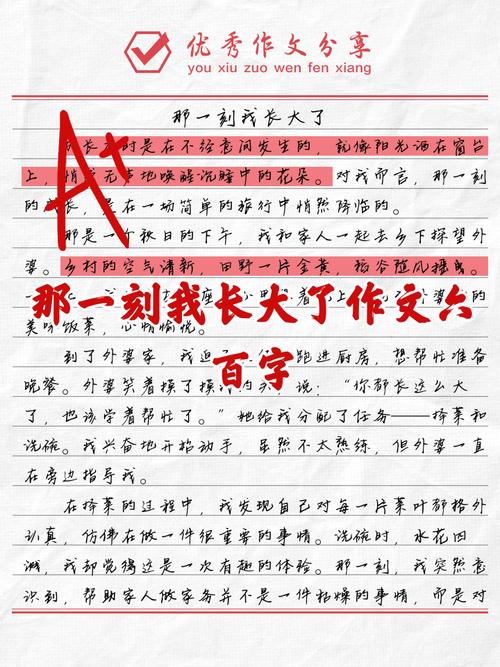 优秀作文分享
you xiu zuo wen fen xiang
那一刻我长大了
长 时是在不经意间发生的，就像阳光洒在窗台
上，悄 无声地唤醒沉睡中的花朵。对我而言，那一刻
的 长，是在一场简单的旅行中悄然降临的。
A+
那是一个秋日的下午，我和家人一起去乡下探望外
婆。乡村的空气清新，田野一片金黄，稻谷随风摇曳。
那一刻我长大了作文六
百字
美味饭菜，心情愉悦。
到了外婆家，我迫 跑进厨房，想帮忙准备
晚餐。外婆笑着摸了摸我的头，说：“你都长这么大
了，也该学着帮忙了。”她给我分配了任务——择菜和
洗碗。我兴奋地开始动手，虽然不太熟练，但外婆一直
在旁边指导我。
在择菜的过程中，我发现自己对每一片菜叶都格外
认真，仿佛在做一件很重要的事情。洗碗时，水花四
溅，我却觉得这是一次有趣的体验。那一刻，我突然意
识到，帮助家人做家务并不是一件枯燥的事情，而是对